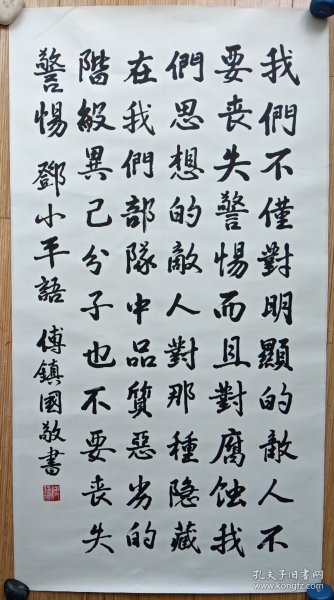 我們不僅對明顯的敵人不
要喪失警惕而且對腐蚀我
們思想的敵人對那種隐藏
在我們部隊中品質惡劣的
階級異己分子也不要喪失
警惕 鄧小平語 傅鎮國敬書
孔夫子旧书网